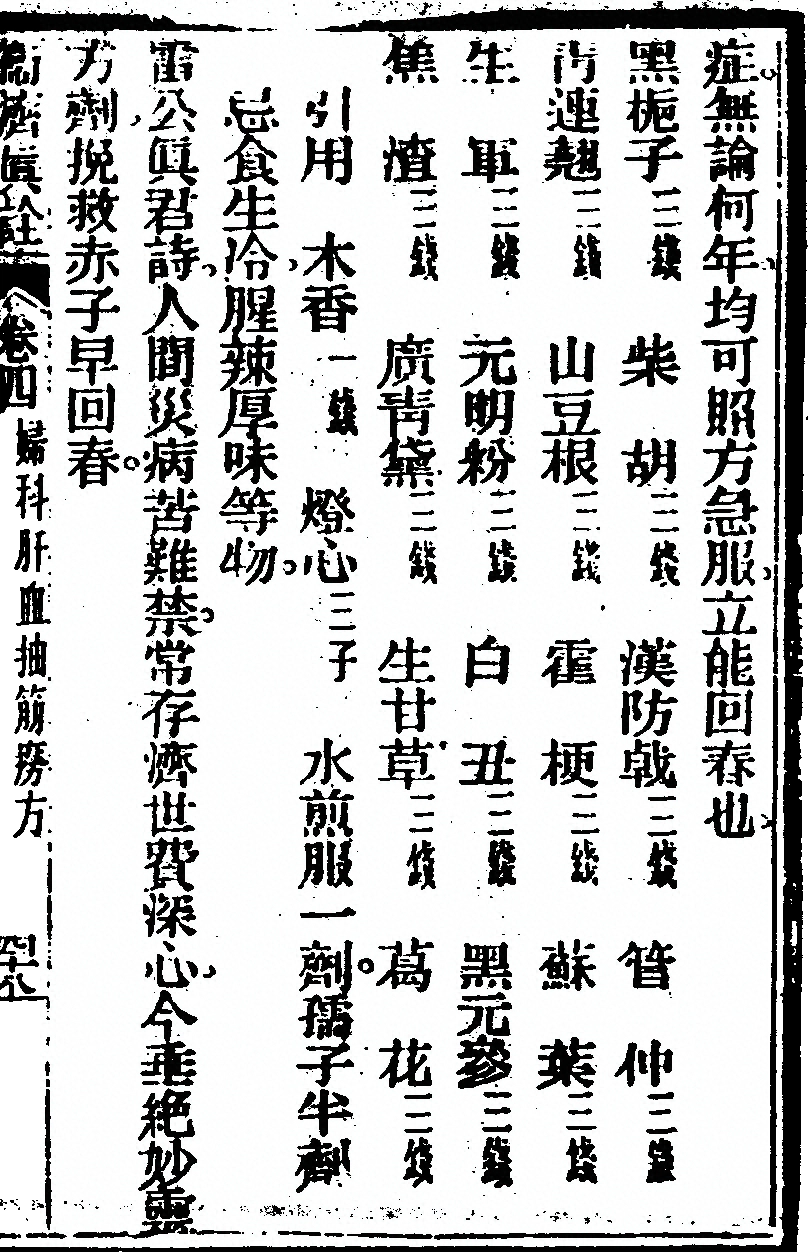 症無論何年均可照方急服立能回春也
黑梔子三錢 柴胡三錢 漢防戟三錢 管仲三錢
靑連翹三錢 山豆根三錢 霍梗三錢 蘇葉三錢
生軍三錢 元明粉三錢 白丑三錢 黑元參三錢
焦渣三錢 廣靑黛三錢 生甘草三錢 葛花三錢
引用 木香一錢 燈心三子 水煎服一劑。孺子半劑
忌食生冷腥辣厚味等物。
雷公眞君詩人間災病苦難禁常存濟世費深心今垂絶妙靈
方劑挽救赤子早回春。
濟眞 卷四 婦科肝血抽筋痨方